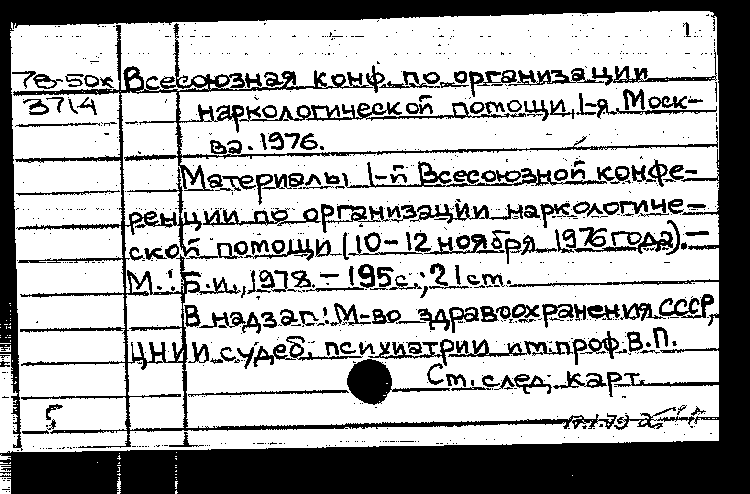 1
78-50к Всесоюзная конф. по организации
3714 наркологической помощи, 1-я. Моск-
ва. 1976.
Материалы 1-й Всесоюзной конфе-
ренции по организации наркологиче-
ской помощи (10-12 ноября 1976 года). -
М.: Б.и., 1978. - 195с.; 21см.
В надзаг.: М-во здравоохранения СССР,
ЦНИИ судеб. психиатрии им. проф. В.П.
См. след. карт.
5 17.1.79